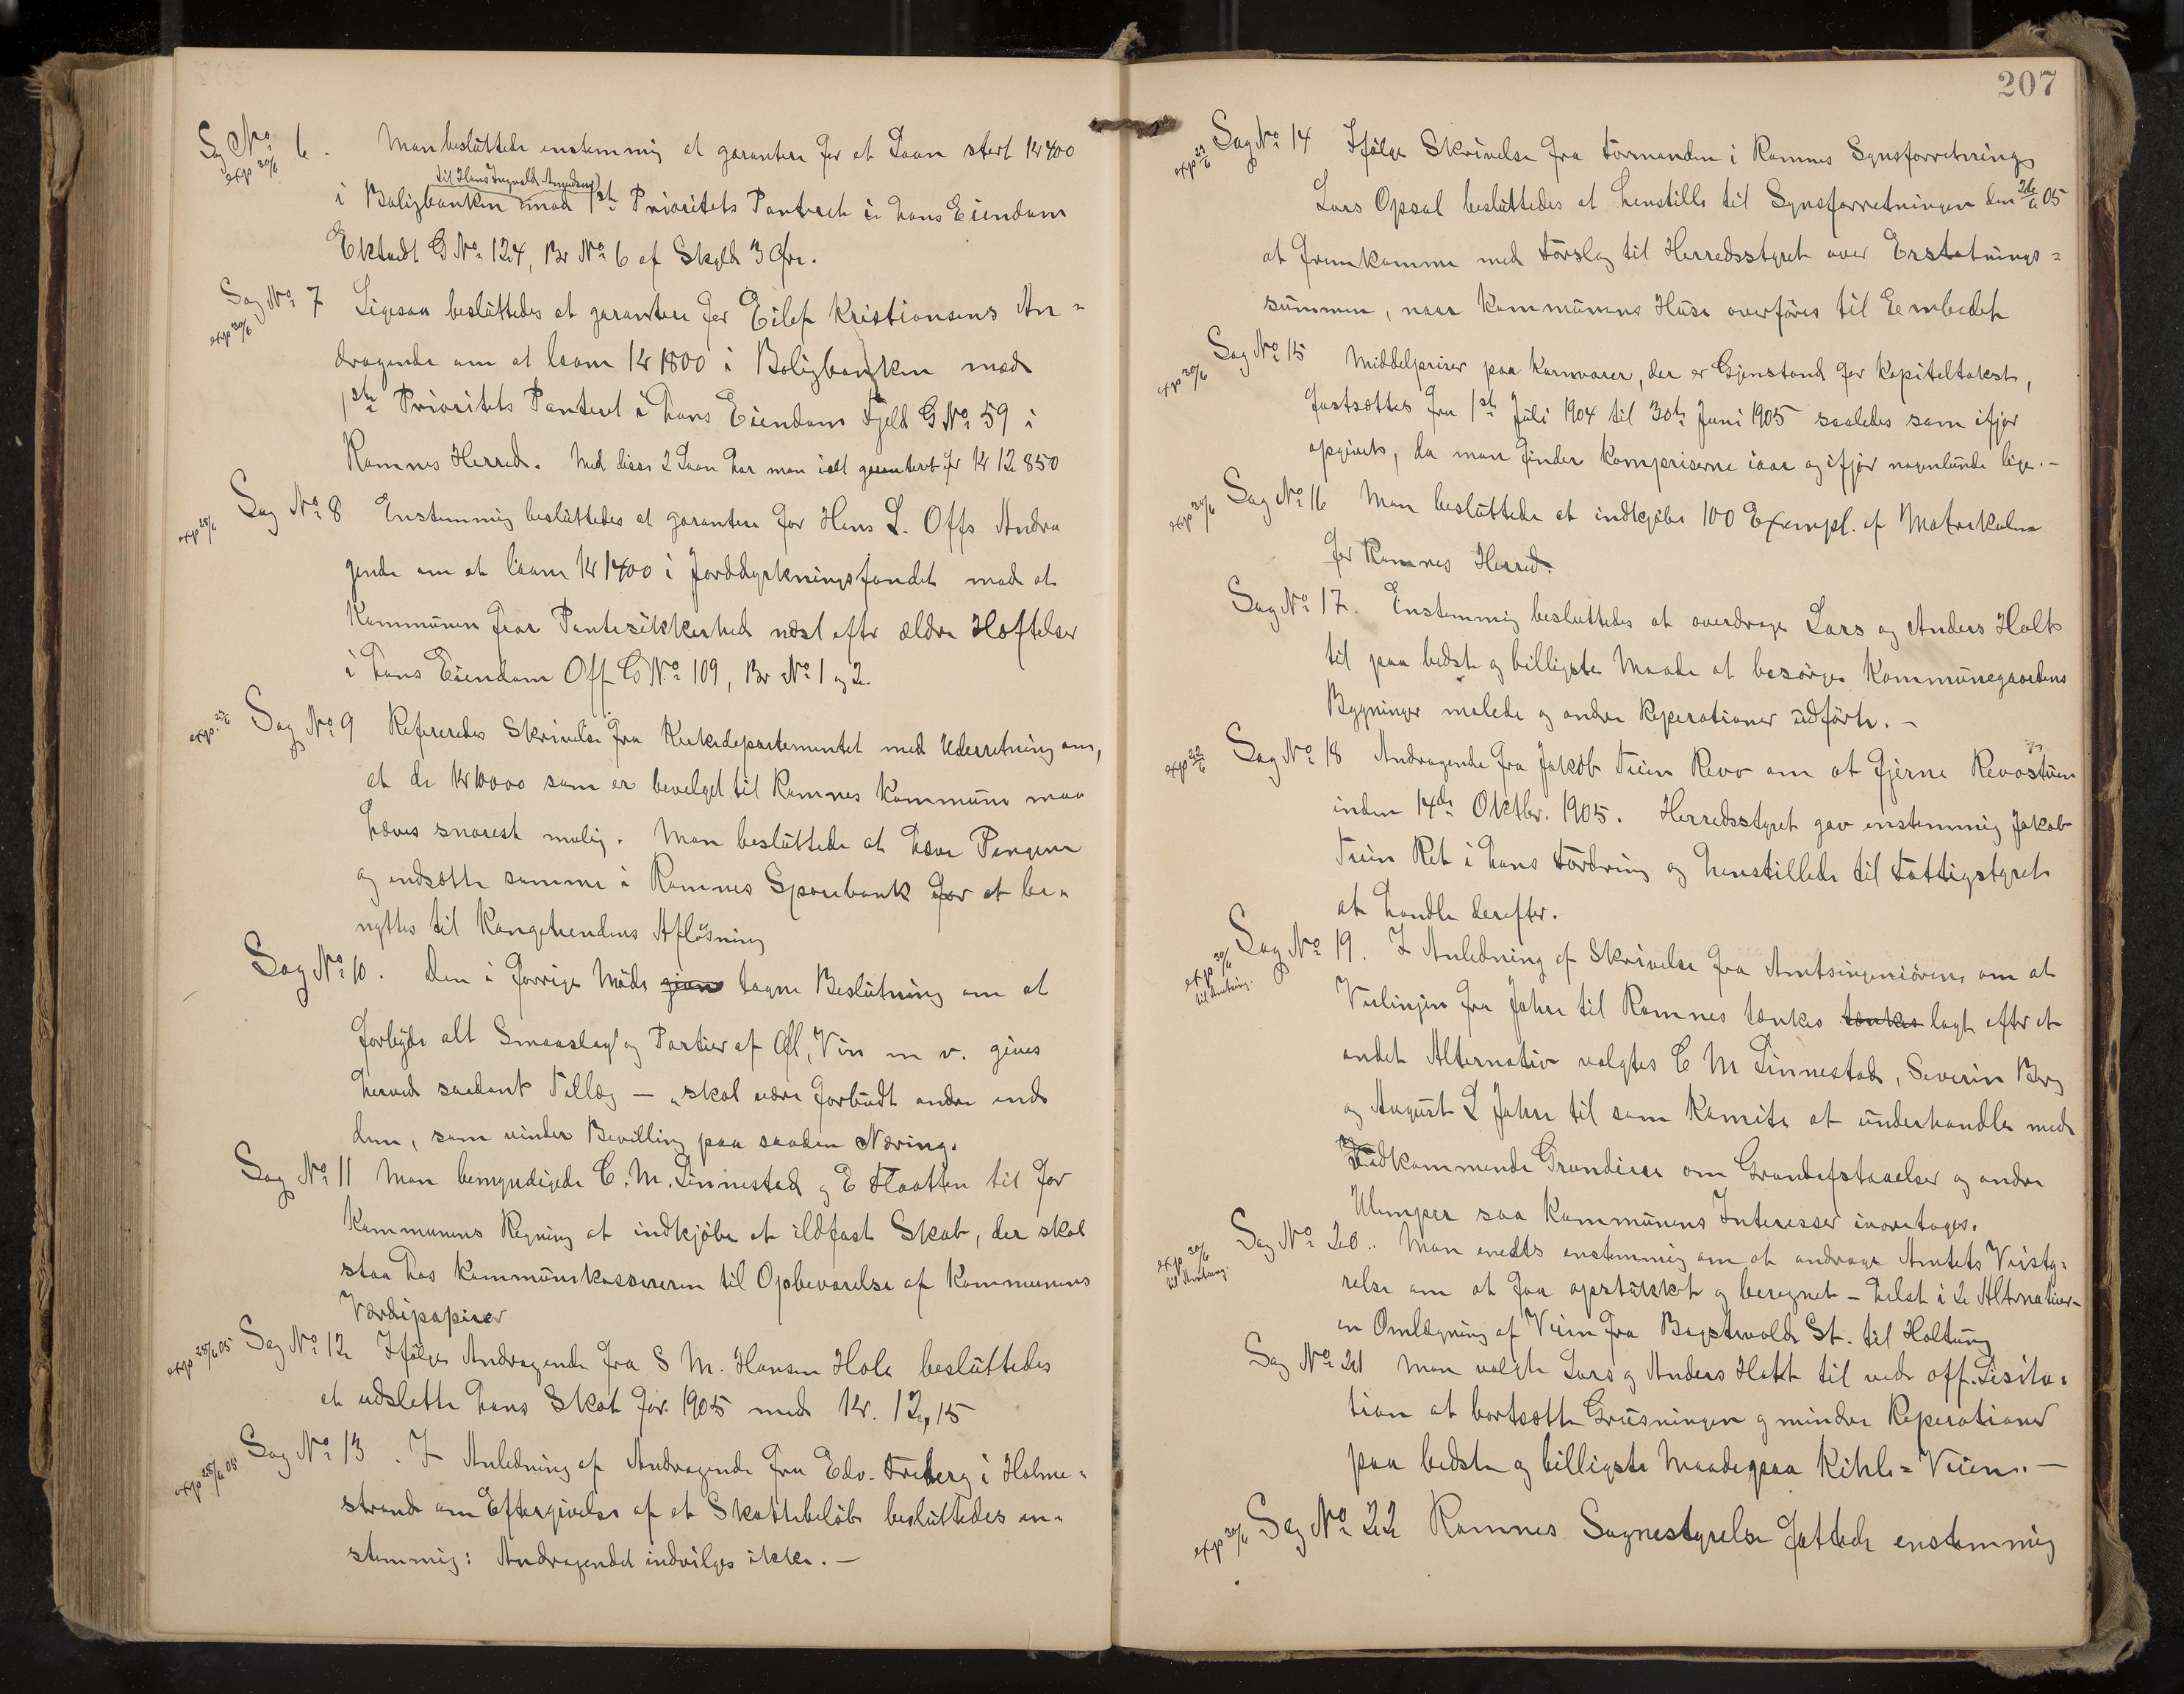 Sag No 6. Man besluttede enstemmig at garantere for et Laan stort Kr 400
exp 30/6
til Hans Ingvald Amundsen
i Boligbanken mod 1ste Prioritets Panteret i hans Eiendom
Ektvedt G No 124, Br No 6 af Skyld 3 Øre.
Sag No 7 Ligesaa besluttedes at garantere for Eilef Kristiansens An-
exp 30/6
dragende om at laane Kr 1800 i Boligbanken mod
1ste Prioritets Panteret i hans Eiendom Fjeld G No 59 i
Ramnes Herred. Med disse 2 Laan har man ialt garanteret for Kr 12850
Sag No 8 Enstemmig besluttedes at garantere for Hans L. Offs Andra
exp 25/6
gende om at laane Kr 1400 i Jorddyrkningsfondet mod at
Kommunen faar Pantesikkerhed næst efter ældre Hæftelser
i hans Eiendom Off G No 109, Br No 1 og 2.
Sag No 9 Refereredes Skrivelse fra Kirkedepartementet med Underretning om,
exp.
at de Kr 10000 som er bevilget til Ramnes Kommune maa
hæves snarest mulig. Man besluttede at hæve Pengene
og indsætte samme i Ramnes Sparebank for at be-
nyttes til Kongetiendens Afløsning
Sag No 10. Den i forrige Møde givne tagne Beslutning om at
forbyde alt Smaaslag og Partier af Øl, Vin m v. gives
herved saadant Tillæg — „skal være forbudt andre end
dem, som vinder Bevilling paa saadan Næring.
Sag No 11 Man bemyndigede C. M. Linnestad og E Haatten til for
Kommunens Regning at indkjøbe et ildfast Skab, der skal
staa hos Kommunekassereren til Opbevarelse af Kommunens
Værdipapirer
Sag No 12 Ifølge Andragende fra S M. Hansen Hole besluttedes
exp 25/6 05
at udslette hans Skat for 1905 med Kr. 12,15
Sag No 13. I Anledning af Andragende fra Edv. Freberg i Holme-
exp 25/6 05
strand om Eftergivelse af et Skattebeløb besluttedes en-
stemmig: Andragendet indvilges ikke. —
207
Sag No 14 Ifølge Skrivelse fra Formanden i Ramnes Synsforretnings
exp 23/6
Lars Opsal besluttedes at henstille til Synsforretningen den 2de/6 05
at fremkomme med Forslag til Herredsstyret over Erstatnings-
summen, naar Kommunens Huse overføres til Embedet
Sag No 15 Middelpriser paa Kornvarer, der er Gjenstand for Kapiteltakst,
exp 30/6
fastsættes fra 1ste Juli 1904 til 30te Juni 1905 saaledes som ifjor
opgivets, da man finder Kornpriserne iaar og ifjor nogenlunde lige. —
Sag No 16 Man besluttede at indkjøbe 100 Exempl. af Matrikulen
exp 30/6
for Ramnes Herred.
Sag No 17. Enstemmig besluttedes at overdrage Lars og Anders Holt
til paa bedste og billigste Maade at besørge Kommunegaardens
Bygninger malede og andre Reperationer udførte. —
Sag No 18 Andragende fra Jakob Feen Revo om at fjerne Revostuen
exp 22/6
inden 14de Oktbr. 1905. Herredsstyret gav enstemmig Jakob
Feen Ret i hans Fordring og henstillede til Fattigstyret
at handle derefter.
Sag No 19. I Anledning af Skrivelse fra Amtsingeniøren om at
exp 30/6
til Amtsing.
Veilinjen fra Jahre til Ramnes tænkes tænkes lagt efter et
andet Alternativ valgtes C M Linnestad, Severin Berg
og August L Jahre til som Komite at underhandle med
Vedkommende Grundeiere om Grundafstaaelser og andre
Ulemper saa Kommunens Interesser ivaretages.
Sag No 20.. Man enedes enstemmig om at andrage Amtets Veisty-
exp 30/6
til Amtsing.
relse om at faa opstukket og beregnet — helst i 2 Alternativer —
en Omlægning af Veien fra Bagstevolds St. til Holtung
Sag No 21 Man valgte Lars og Anders Holt til ved off. Lisita-
tion at bortsætte Grusningen og mindre Reperationer
paa bedste og billigste Maade paa Kihle-Veien. —
Sag No 22 Ramnes Sognestyrelse fattede enstemmig
exp 30/6